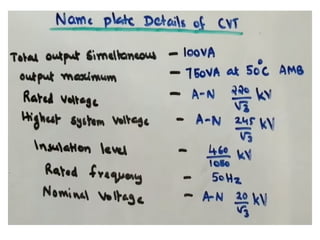 Name plate Details of CVT
Total output Simeltaneous - 100VA
output maximum - 750VA at 50°C AMB
Rated Voltage - A-N 220/√3 kV
Highest system Voltage - A-N 245/√3 kV
Insulation level - 460/1050 kV
Rated frequency - 50Hz
Nominal Voltage - A-N 20/√3 kV